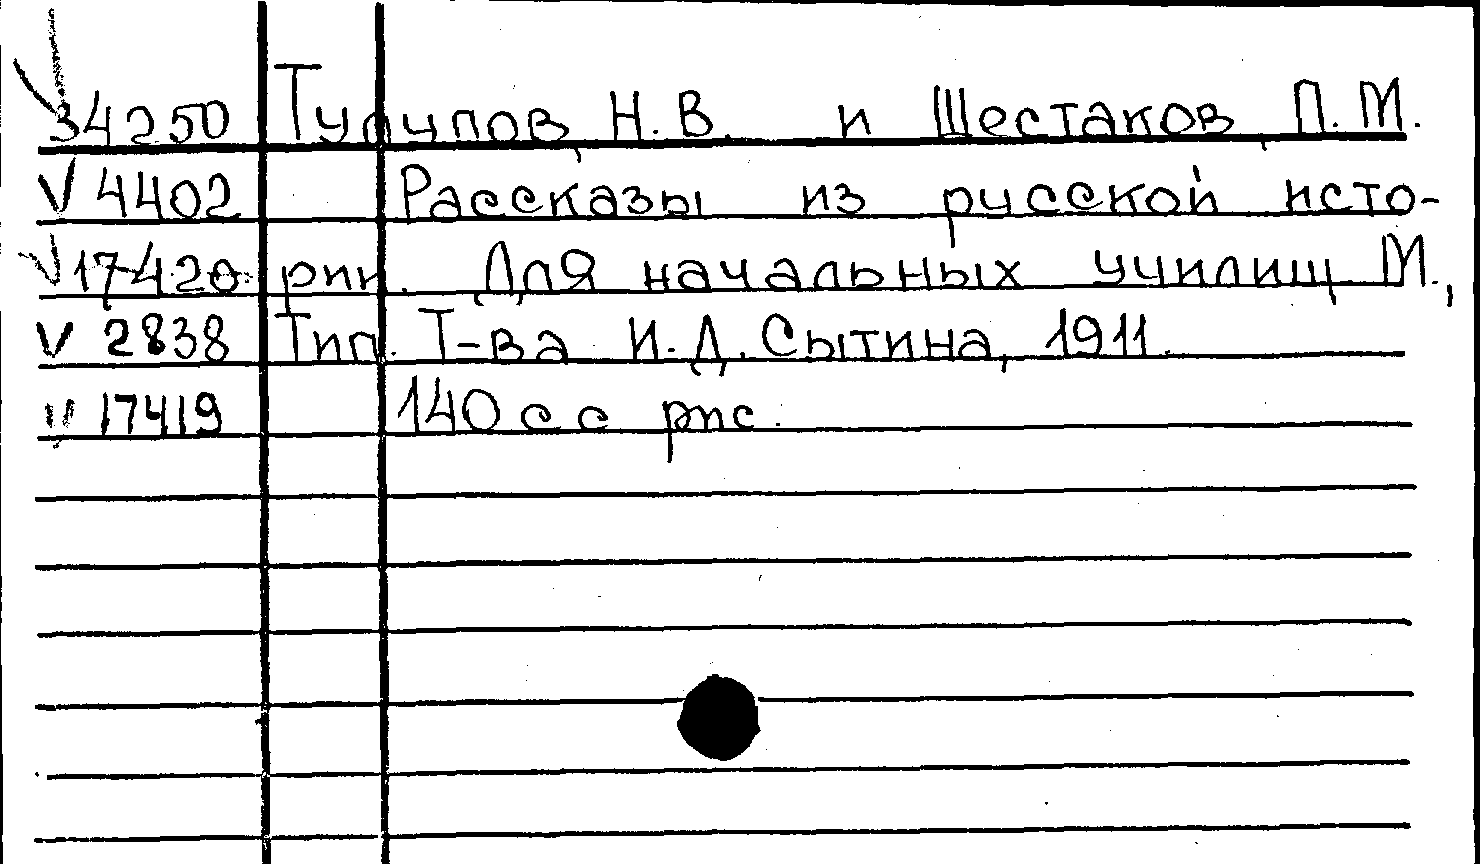 34250 Тулупов, Н.В. и Шестаков, П.М.
V 4402 Рассказы из русской исто-
V 17420 рии. Для начальных училищ М.,
V 2838 Тип. Т-ва И.Д. Сытина, 1911.
17419 140 с с рис.